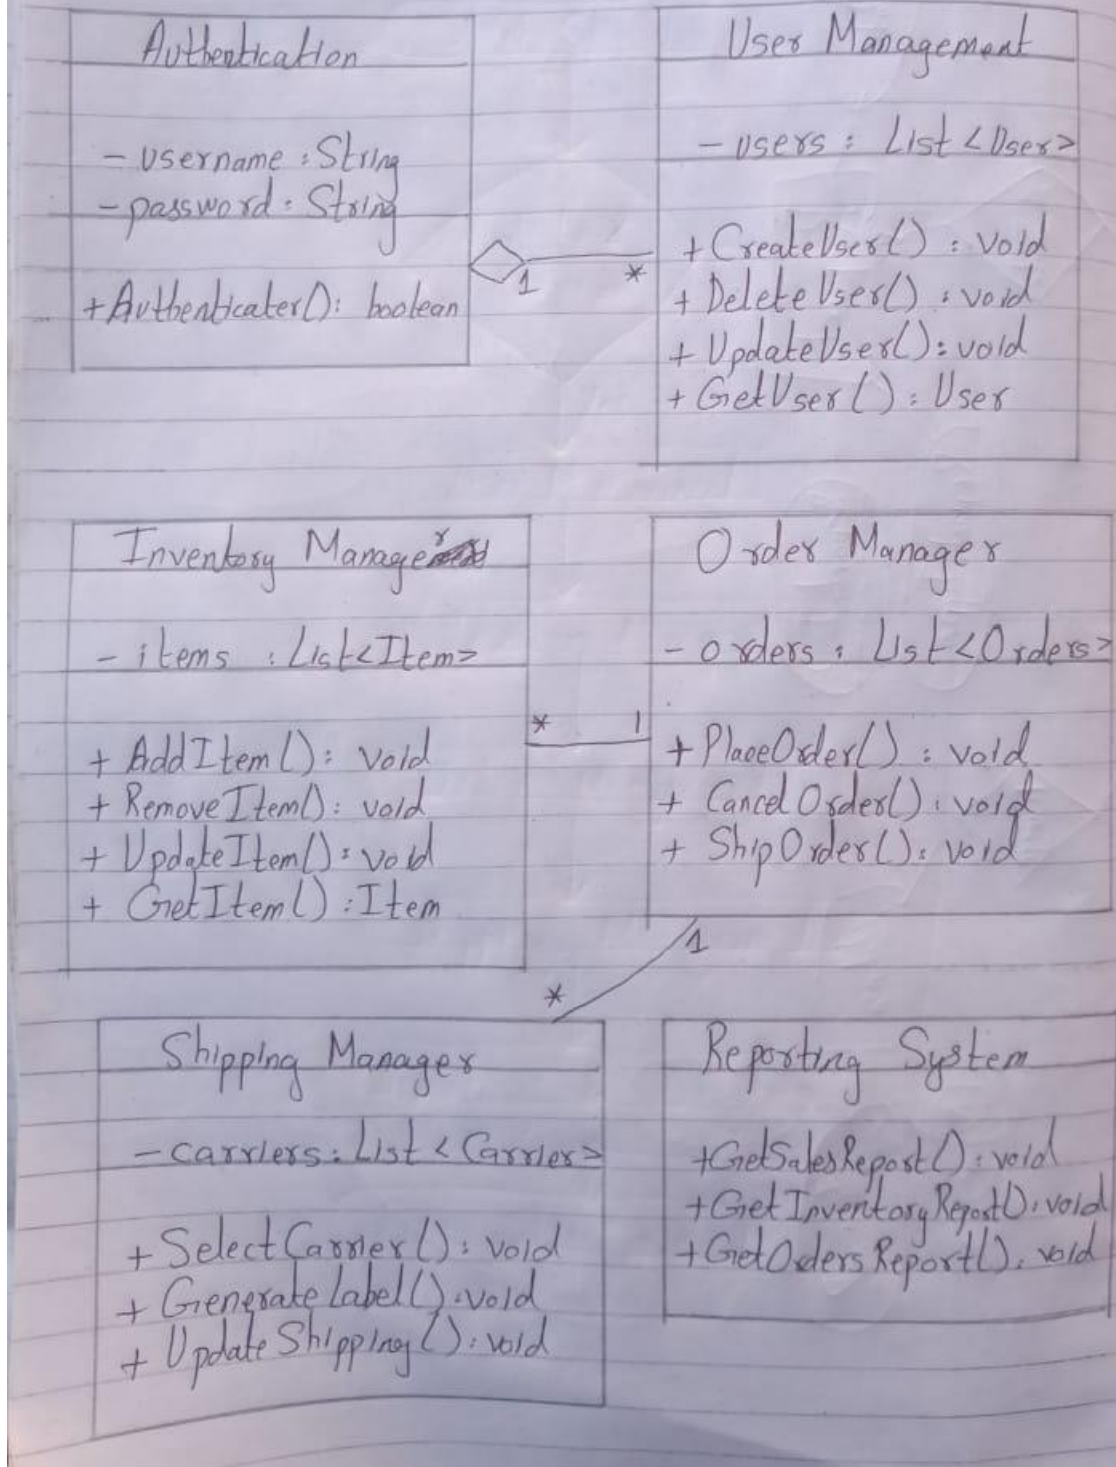 Authentication
- username : String
- password : String
+ Authenticater() : boolean
1
*
User Management
- users : List <User>
+ CreateUser() : void
+ DeleteUser() : void
+ UpdateUser() : void
+ GetUser() : User
Inventory Manager
- items : List<Item>
+ AddItem() : void
+ RemoveItem() : void
+ UpdateItem() : void
+ GetItem() : Item
*
1
Order Manager
- orders : List <Orders>
+ PlaceOrder() : void
+ CancelOrder() : void
+ ShipOrder() : void
1
*
Shipping Manager
- carriers : List <Carrier>
+ SelectCarrier() : void
+ GenerateLabel() : void
+ UpdateShipping() : void
Reporting System
+ GetSalesReport() : void
+ GetInventoryReport() : void
+ GetOrdersReport() : void